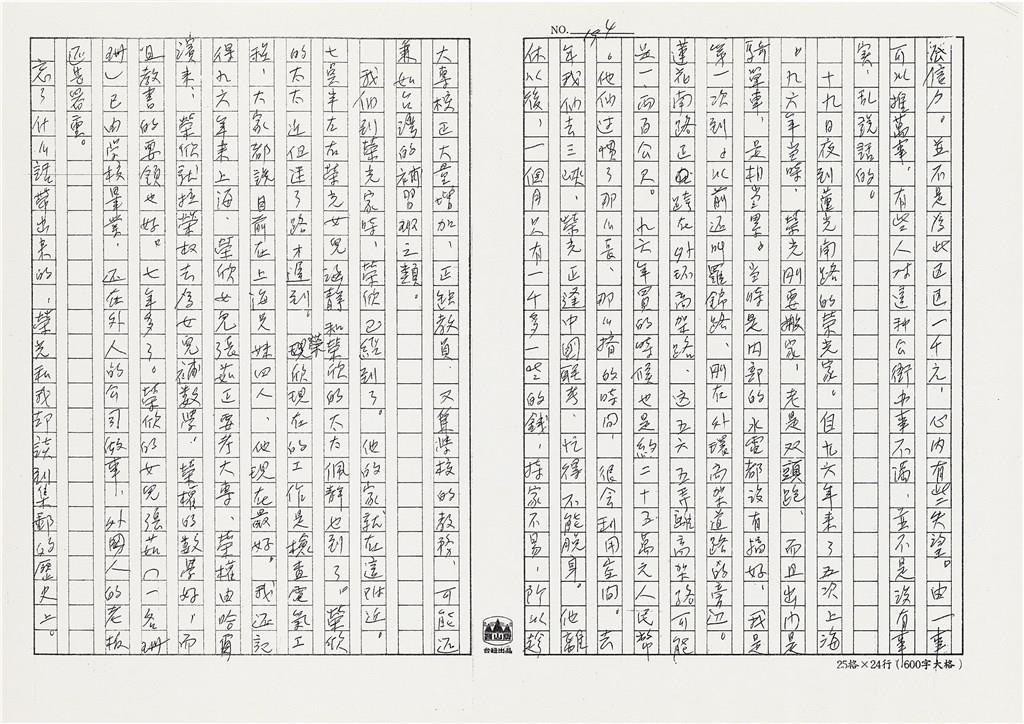 NO. 194
派信力。並不是為此迟迟一千元,心內有些失望。由一事
可以推萬事,有些人对這种公衛办事不滿,並不是沒有事
实,乱說話的。
十九日夜到蓮光南路的荣光家。自九六年来了五次上海
。九六年当時,榮光刚要搬家,老是双頭跑,而且出門是
騎單車,是相当累。当時是內部的水電都沒有搞好,我是
第一次到。以前还叫羅錦路,刚在外環高架道路的旁边。
蓮花南路正跨在外环高架路,这五六五弄離高架路可能
是一两百公尺。九六年買的時候也是約二十五萬元人民幣
。他们过慣了那么長,那么擠的時间,很会利用空间。去
年我们去三峽,榮光正逢中國联考,忙得不能脫身。他離
休以後,一個月只有一千多一些的錢,持家不易,所以趁
大專校正大量增加,正缺教員,又集學校的教務,可能还
兼如台灣的補習班之類。
我们到荣光家時,榮欣已經到了。他的家就在這附近。
七點半左右榮光女兒涵静和榮欣的太太佩静也到了。榮欣
的太太近但迷了路才遲到。榮欣現在的工作是檢查電氣工
程,大家都說目前在上海兄妹四人,他現在最好。我还記
得九六年来上海,榮欣女兒張茹正要考大專,榮權由哈爾
濱来,榮欣就拉榮权去為女兒補數學,榮權的數學好,而
且教書的要領也好。七年多了。荣欣的女兒張茹(一名珊
珊)已由学校畢業,还在外人的公司做事,外國人的老板
还告器重。
忘了什么話帶出来的,榮光和我却談到集郵的歷史上。
台紐出品
25格×24行(600字大格)